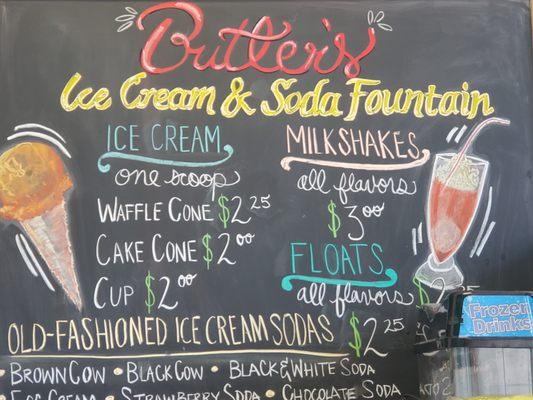 Butler's
Ice Cream & Soda Fountain
ICE CREAM
one scoop
WAFFLE CONE $2 25
CAKE CONE $2 00
CUP $2 00
MILKSHAKES
all flavors
$3 00
FLOATS
all flavors $2 25
OLD-FASHIONED ICE CREAM SODAS $2 25
• BROWN COW • BLACK COW • BLACK & WHITE SODA
EGG CREAM • STRAWBERRY SODA • CHOCOLATE SODA
Frozen
Drinks